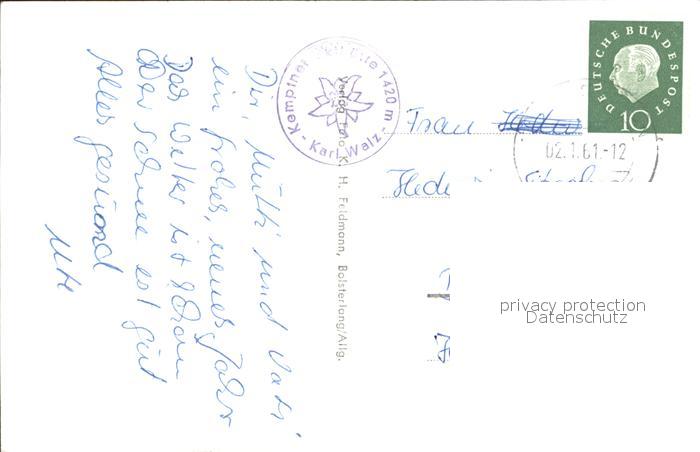 Dir, Mutti und Vati
ein frohes, neues Jahr
Das Wetter ist schön
Der Schnee ist gut
Alles gesund
Kemptner Hütte 1420 m
- Karl Walz -
Verlag Foto K. H. Feldmann, Bolsterlang/Allg.
DEUTSCHE BUNDESPOST
10
02.1.61.-12
Frau
privacy protection
Datenschutz